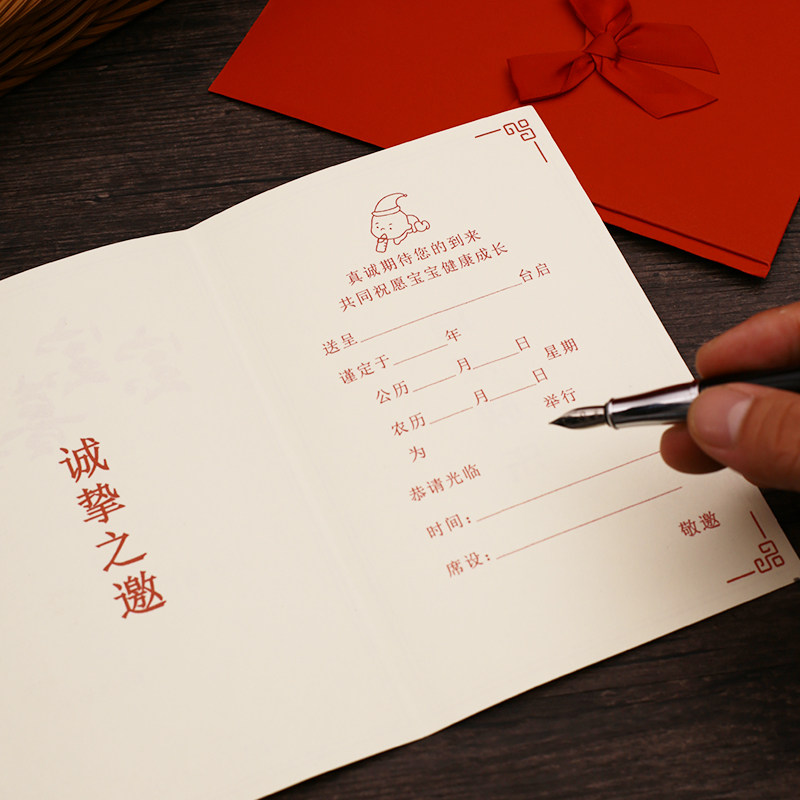 诚挚之邀
真诚期待您的到来
共同祝愿宝宝健康成长
送呈 台启
谨定于 年
公历 月 日 星期
农历 月 日 举行
为
恭请光临
时间：
席设：
敬邀